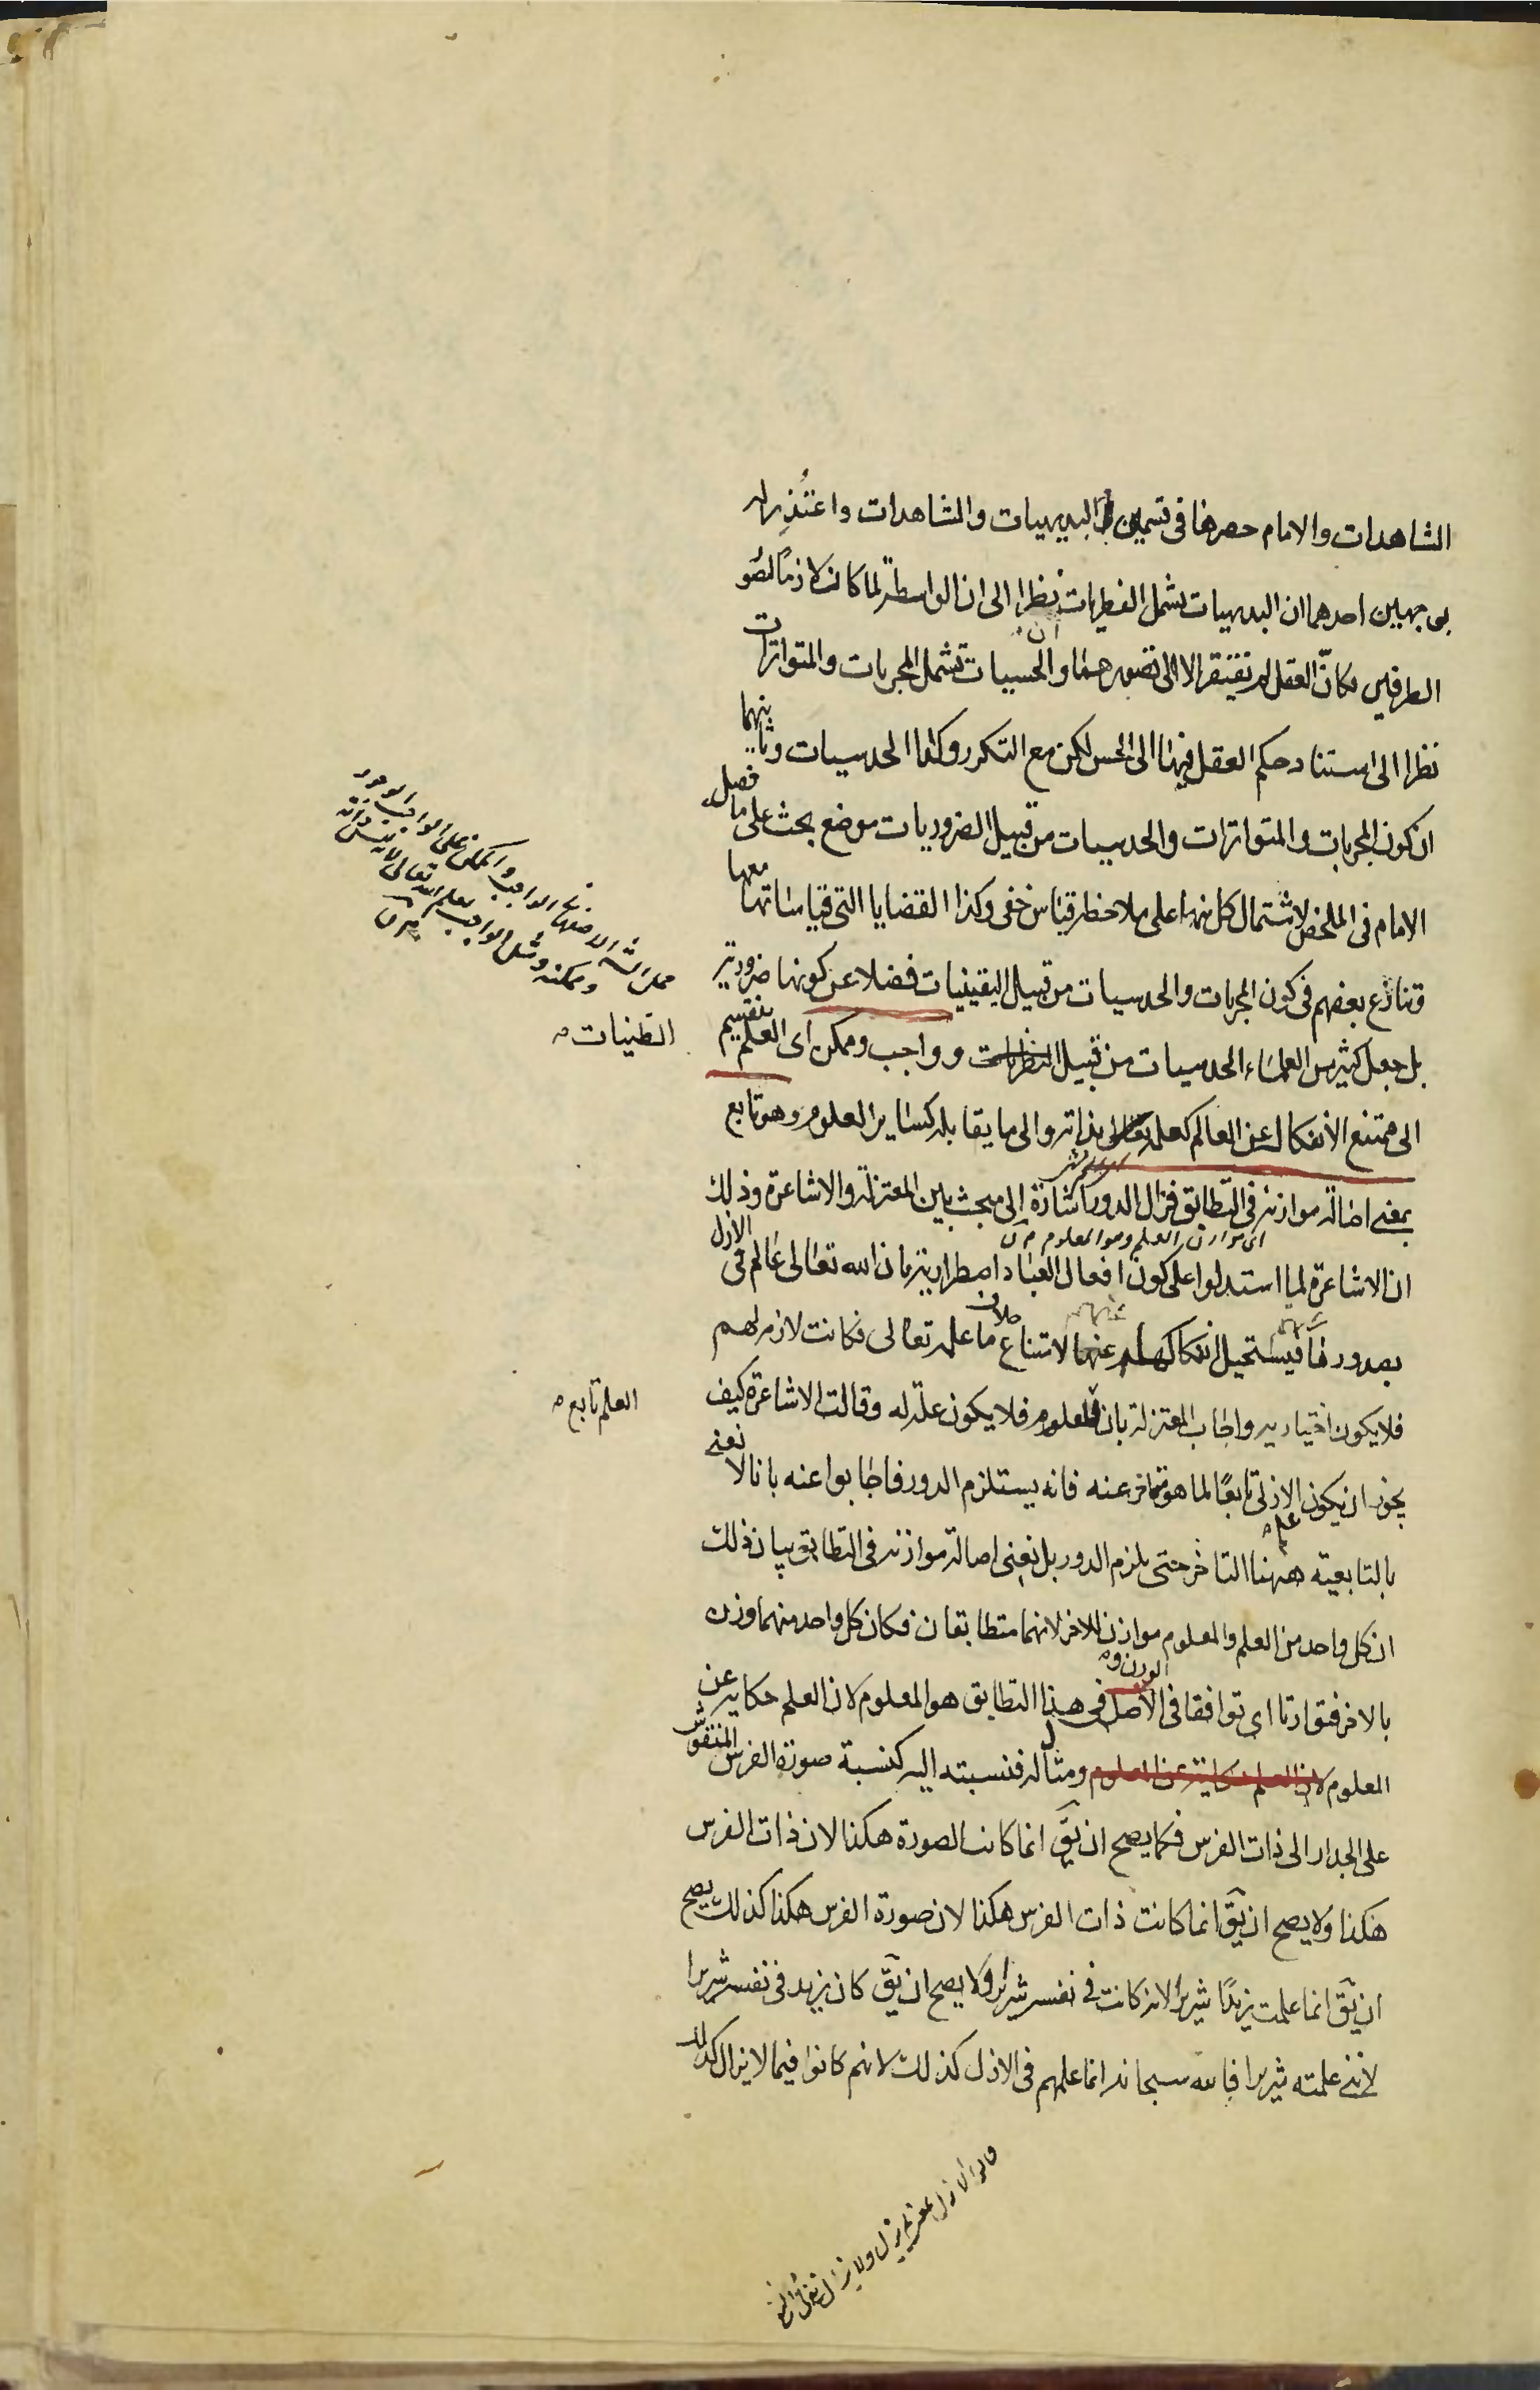 الشاهدات والامام حصرها فى قسمين البديهيات والمشاهدات واعتُذِر له
بوجهين احدهما ان البديهيات يشمل الفطريات نظرا الى ان الواسطة لما كان لازمًا لتصور
الطرفين فكانّ العقل لم تفتقر الا الى تصورهما وان الحسيات تشمل المجربات والمتواترات
نظرا الى استناد حكم العقل فيها الى الحس لكن مع التكرر وكذا الحدسيات وثانيهما
ان كون المجربات والمتواترات والحدسيات من قبيل الضروريات موضع بحث على ما فصله
الامام فى الملخص لاشتمال كل منها على ملاحظة قياس خفى وكذا القضايا التى قياساتها معها
وتنازع بعضهم فى كون المجربات والحدسيات من قبيل اليقينيات فضلا عن كونها ضرورية
بل جعل كثير من العلماء الحدسيات من قبيل النظريات و وواجب وممكن اى العلم ينقسم
الظنيات
الى ممتنع الانفكاك عن العالم كعلمه تعالى بذاته والى ما يقابله كساير العلوم وهو تابع
بمعنى اصالة موازنه فى التطابق فزال الدور اشارة إلى مبحث بين المعتزلة والاشاعرة وذلك
اى موازن العلم وهو المعلوم
ان الاشاعرة لما استدلوا على كون افعال العباد اضطارية بان الله تعالى عالم فى الازل
بصدورها فيستحيل انفكاكهم عنها لامتناع خلاف ما علمه تعالى فكانت لازمة لهم
فلا يكون اختيارية واجاب المعتزلة بان للمعلوم فلا يكون علّة له وقالت الاشاعرة كيف
العلم تابع
يجوز ان يكون علمه الازلى تابعًا لما هو متاخر عنه فانه يستلزم الدور فاجابوا عنه بانا لا نعنى
بالتابعية ههنا التاخر حتى يلزم الدور بل نعنى اصالة موازنه فى التطابق بيان ذلك
ان كل واحد من العلم والمعلوم موازن للاخر لانهما متطابقان فكان كل واحد منهما وزن
بالاخر فتوازنا اى توافقا فى الوزن و الاصل فى هذا التطابق هو المعلوم لان العلم حكاية عن
المعلوم لان العلم حكاية عن المعلوم ومثال له فنسبته اليه كنسبة صورة الفرس المنقوش
على الجدار الى ذات الفرس فكما يصح ان يقَ انما كانت الصورة هكذا لان ذات الفرس
هكذا ولا يصح ان يقَ انما كانت ذات الفرس هكذا لان صورة الفرس هكذا كذلك يصح
ان يقَ انما علمت زيدًا شريرا لانه كانت فى نفسه شريرا ولا يصح ان يقَ كان زيد فى نفسه شريرا
لاننى علمته شريرا فالله سبحانه انما علمهم فى الازل كذلك لانهم كانوا فيما لا يزال كذلك